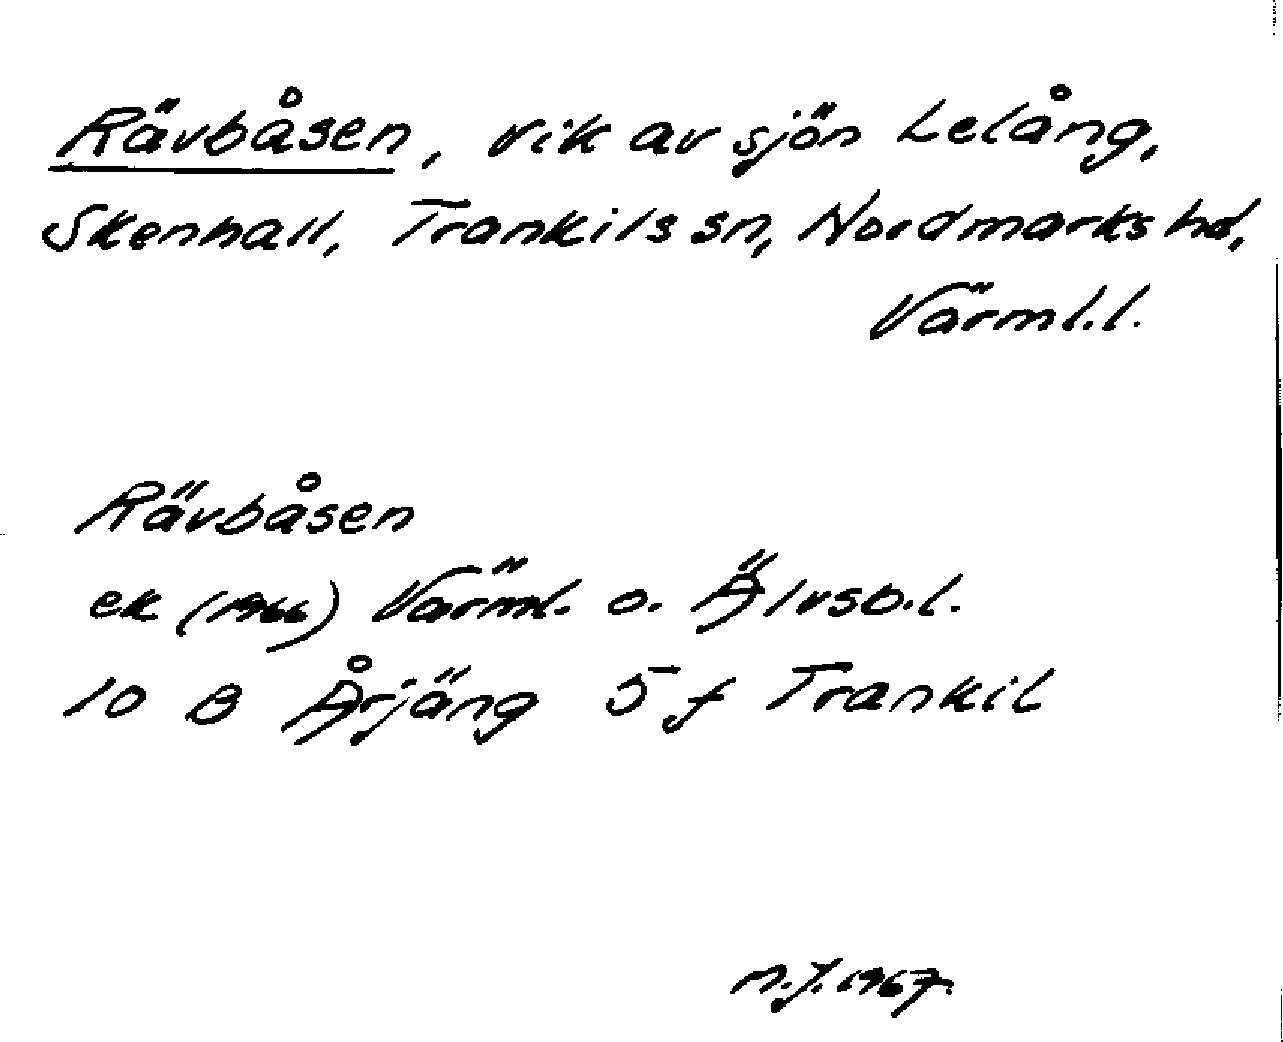 Rävbåsen, vik av sjön Lelång,
Skenhall, Trankils sn, Nordmarks hd,
Värml.l.
Rävbåsen
ek (1966) Värml. o. Älvsb.l.
10 B Årjäng 5 f Trankil
n.J. 1967.